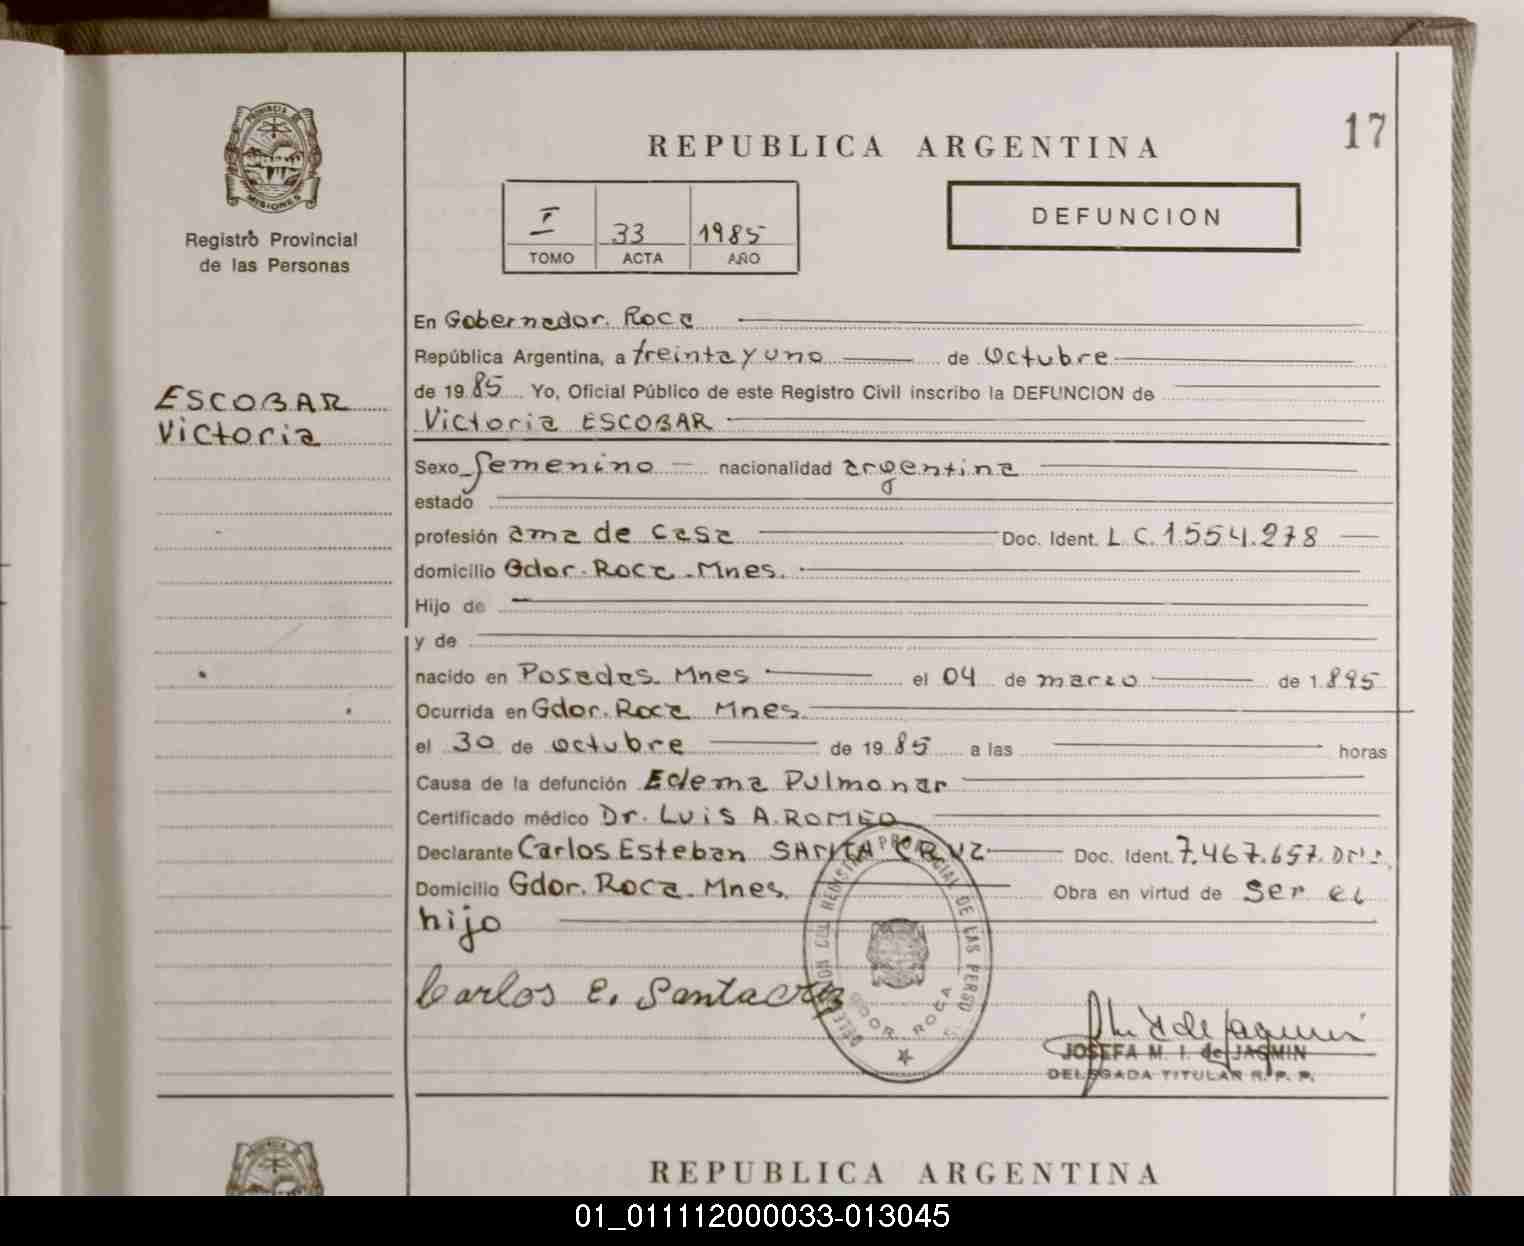 PROVINCIA DE
MISIONES
Registro Provincial
de las Personas
ESCOBAR
Victoria
17
REPUBLICA ARGENTINA
I 33 1985
TOMO ACTA AÑO
DEFUNCION
En Gobernador. Roca
República Argentina, a treinta y uno de Octubre
de 19 85 Yo, Oficial Público de este Registro Civil inscribo la DEFUNCION de
Victoria ESCOBAR
Sexo femenino nacionalidad argentina
estado
profesión ama de casa Doc. Ident. L.C. 1.554.278
domicilio Gdor. Roca. Mnes.
Hijo de
y de
nacido en Posadas. Mnes el 04 de marzo de 1.895
Ocurrida en Gdor. Roca Mnes.
el 30 de octubre de 19 85 a las horas
Causa de la defunción Edema Pulmonar
Certificado médico Dr. Luis A. ROMEO
Declarante Carlos Esteban SANTA CRUZ Doc. Ident. 7.467.657.
Domicilio Gdor. Roca. Mnes. Obra en virtud de Ser el
hijo
Carlos E. Santacruz
DELEGACION DEL REGISTRO PROVINCIAL DE LAS PERSONAS
GDOR. ROCA
JOSEFA M. I. de JAGMIN
DELEGADA TITULAR R. P. P.
PROVINCIA DE
REPUBLICA ARGENTINA
01_011112000033-013045